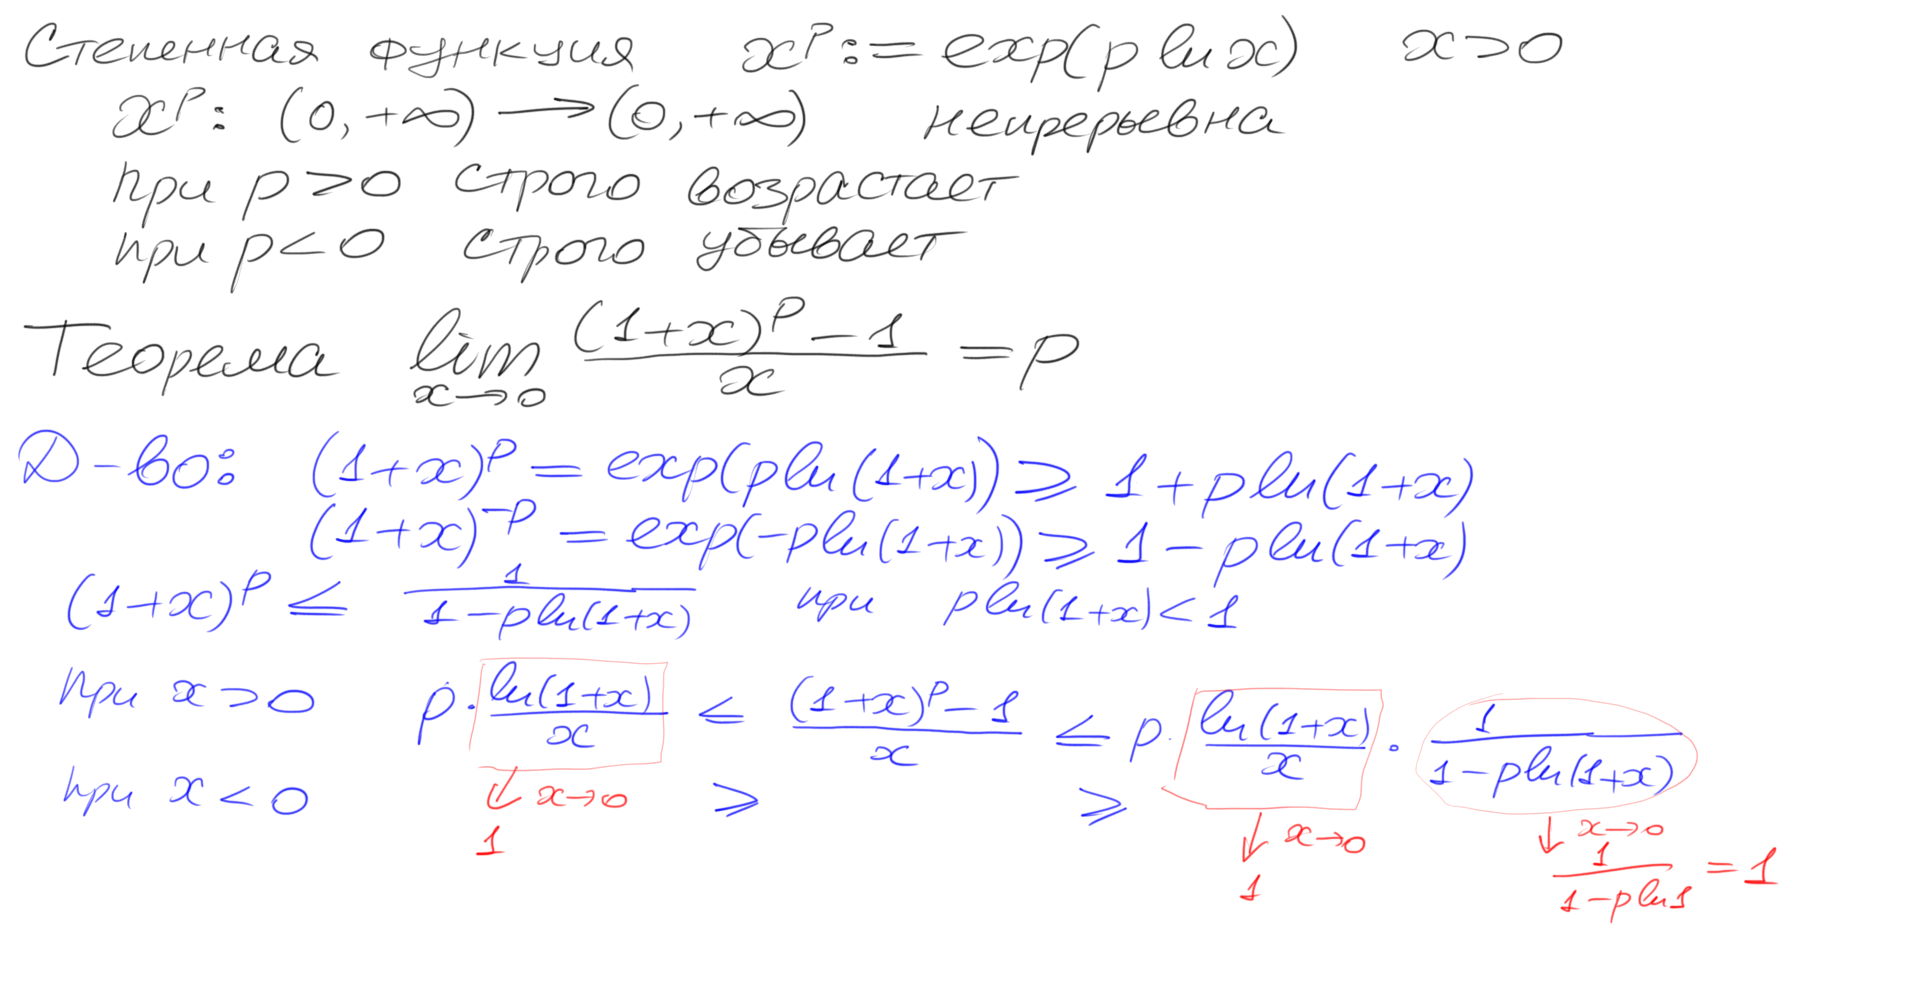 Степенная функция x^p := exp(p ln x) x>0
x^p : (0, +∞) → (0, +∞) непрерывна
при p>0 строго возрастает
при p<0 строго убывает
Теорема lim_{x→0} ((1+x)^p − 1)/x = p
Д-во: (1+x)^p = exp(p ln(1+x)) ⩾ 1 + p ln(1+x)
(1+x)^{−p} = exp(−p ln(1+x)) ⩾ 1 − p ln(1+x)
(1+x)^p ≤ 1/(1 − p ln(1+x)) при p ln(1+x) < 1
при x>0 p · ln(1+x)/x ≤ ((1+x)^p − 1)/x ≤ p · ln(1+x)/x · 1/(1 − p ln(1+x))
при x<0 ↓ x→0 ⩾ ⩾ ↓ x→0 ↓ x→0
1 1 1/(1 − p ln 1) = 1